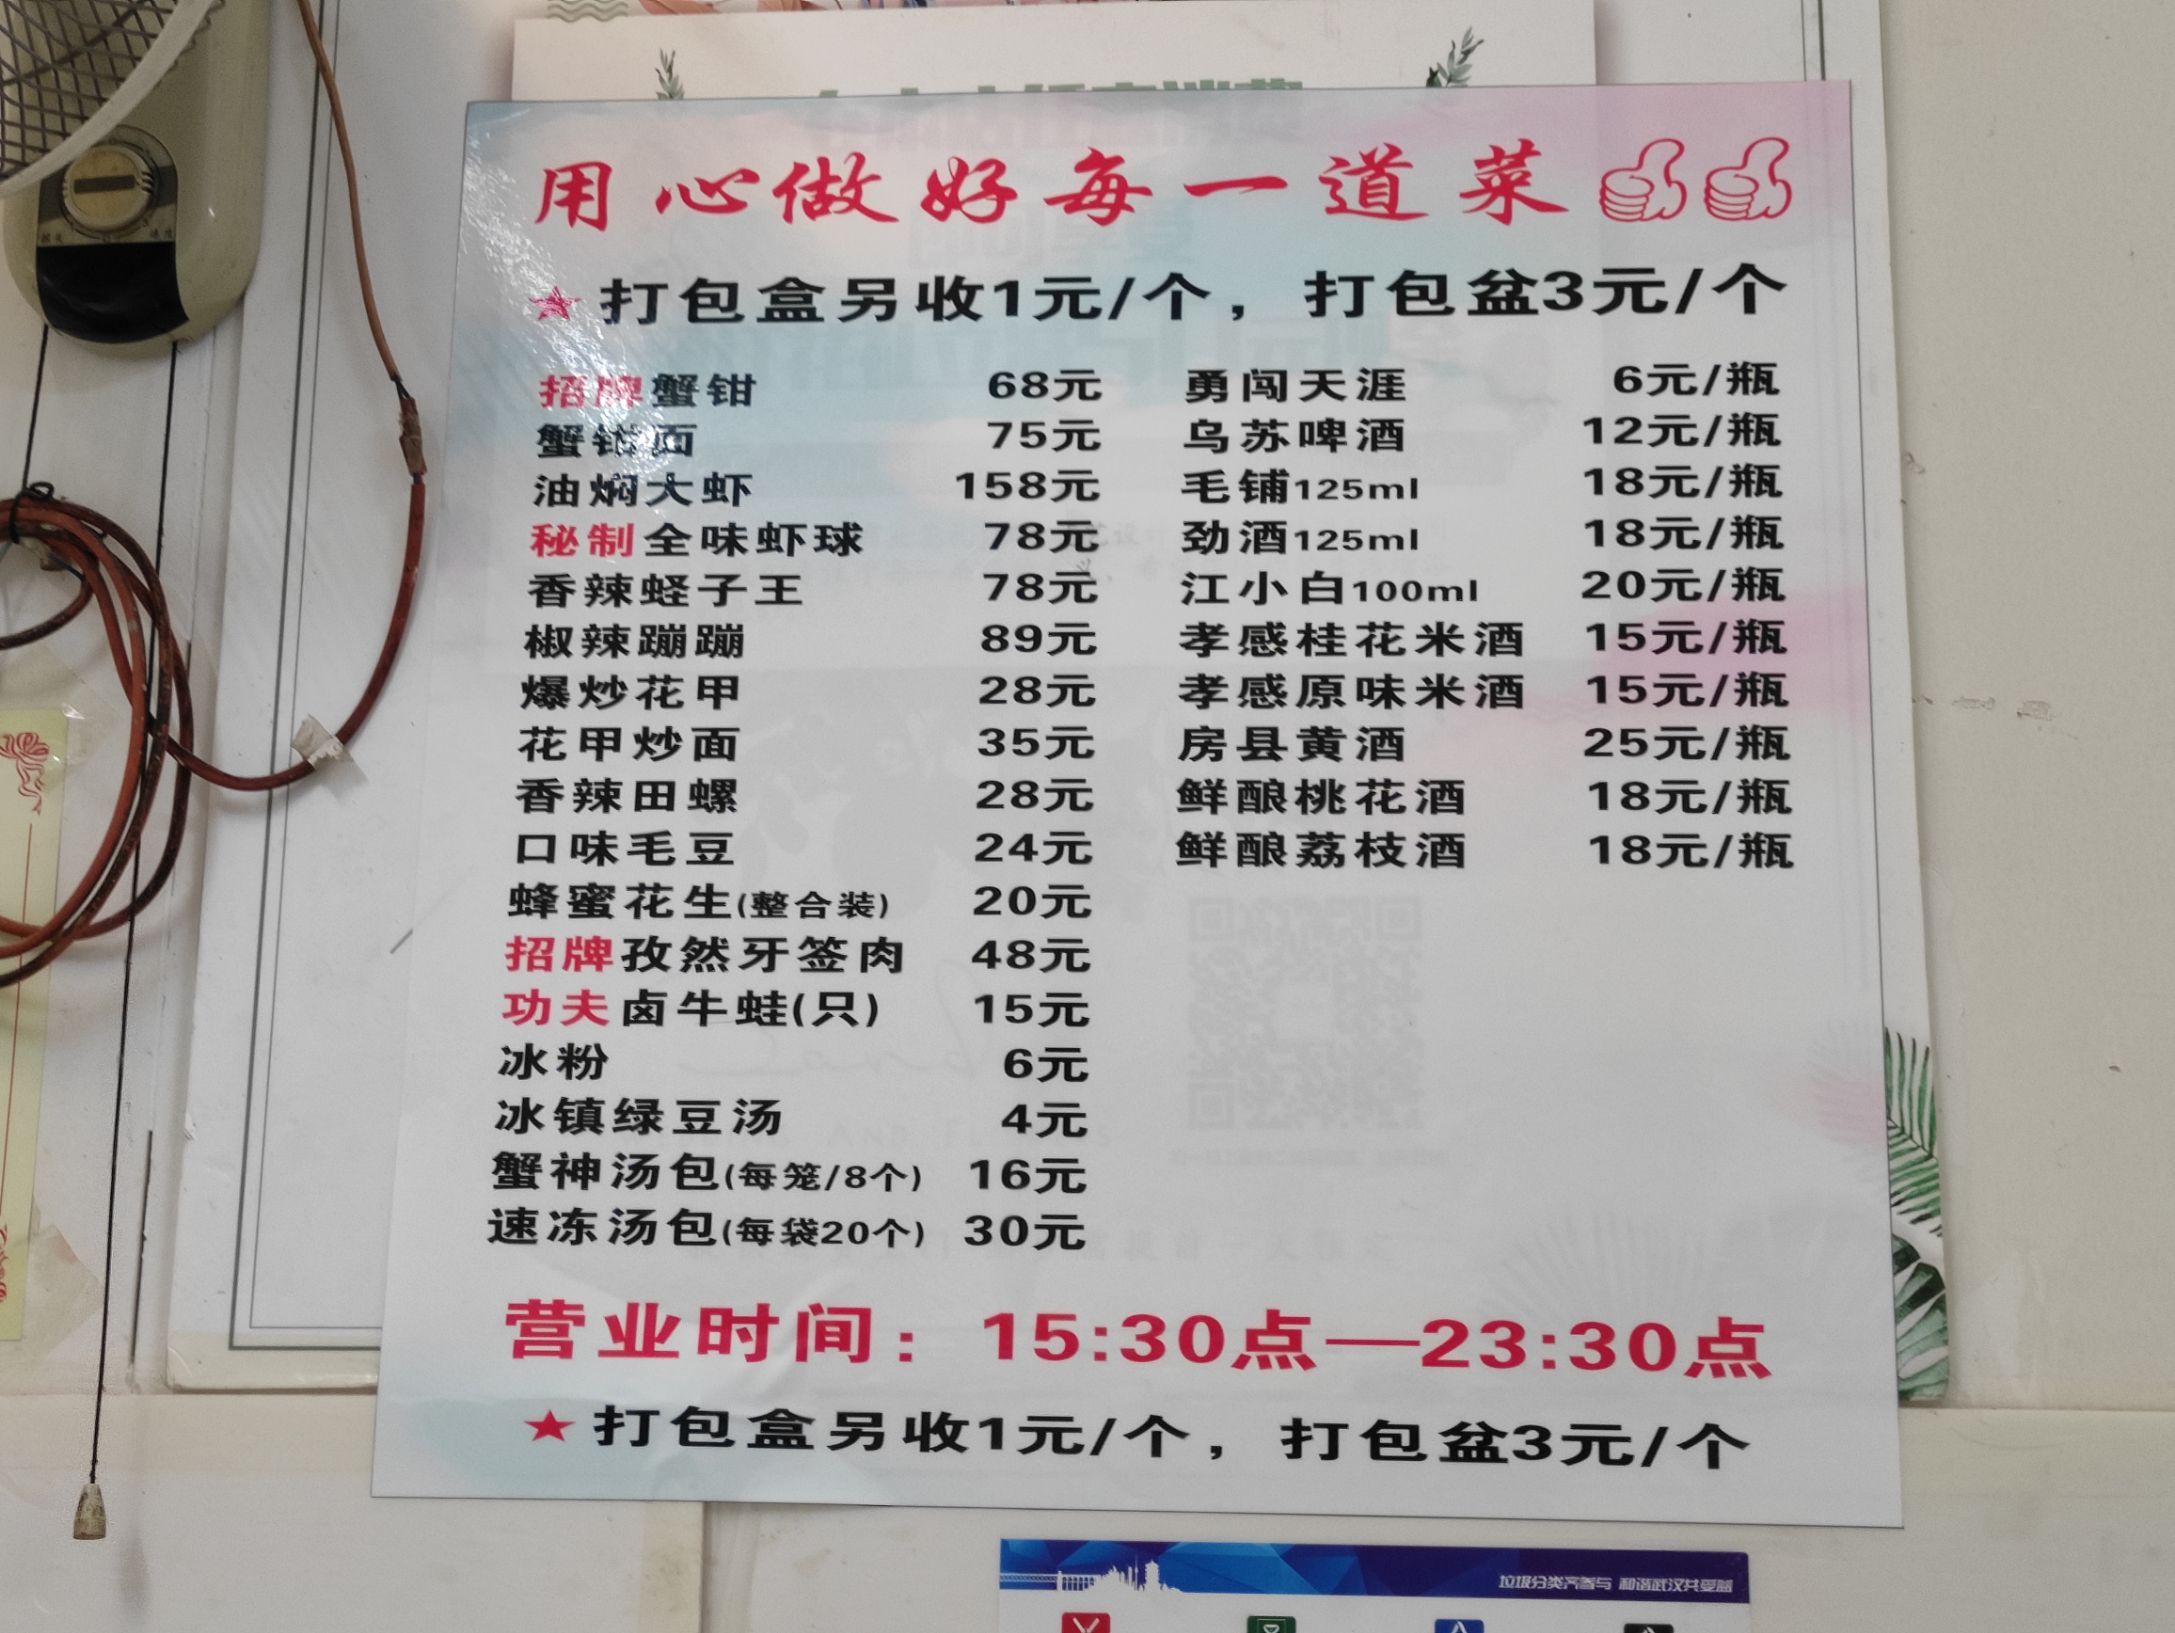 用心做好每一道菜
★打包盒另收1元/个，打包盆3元/个
招牌蟹钳 68元
蟹钳面 75元
油焖大虾 158元
秘制全味虾球 78元
香辣蛏子王 78元
椒辣蹦蹦 89元
爆炒花甲 28元
花甲炒面 35元
香辣田螺 28元
口味毛豆 24元
蜂蜜花生(整合装) 20元
招牌孜然牙签肉 48元
功夫卤牛蛙(只) 15元
冰粉 6元
冰镇绿豆汤 4元
蟹神汤包(每笼/8个) 16元
速冻汤包(每袋20个) 30元
勇闯天涯 6元/瓶
乌苏啤酒 12元/瓶
毛铺125ml 18元/瓶
劲酒125ml 18元/瓶
江小白100ml 20元/瓶
孝感桂花米酒 15元/瓶
孝感原味米酒 15元/瓶
房县黄酒 25元/瓶
鲜酿桃花酒 18元/瓶
鲜酿荔枝酒 18元/瓶
营业时间：15:30点—23:30点
★打包盒另收1元/个，打包盆3元/个
垃圾分类齐参与 和谐武汉共受益